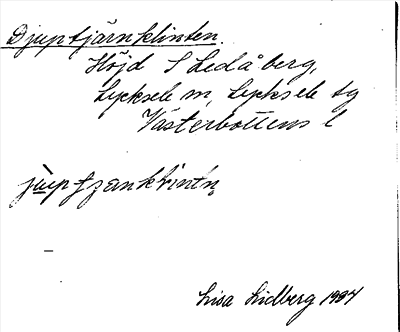 Djuptjärnklinten.
Höjd S Ledåberg,
Lycksele m, Lycksele tg
Västerbottens l
Lisa Lidberg 1934